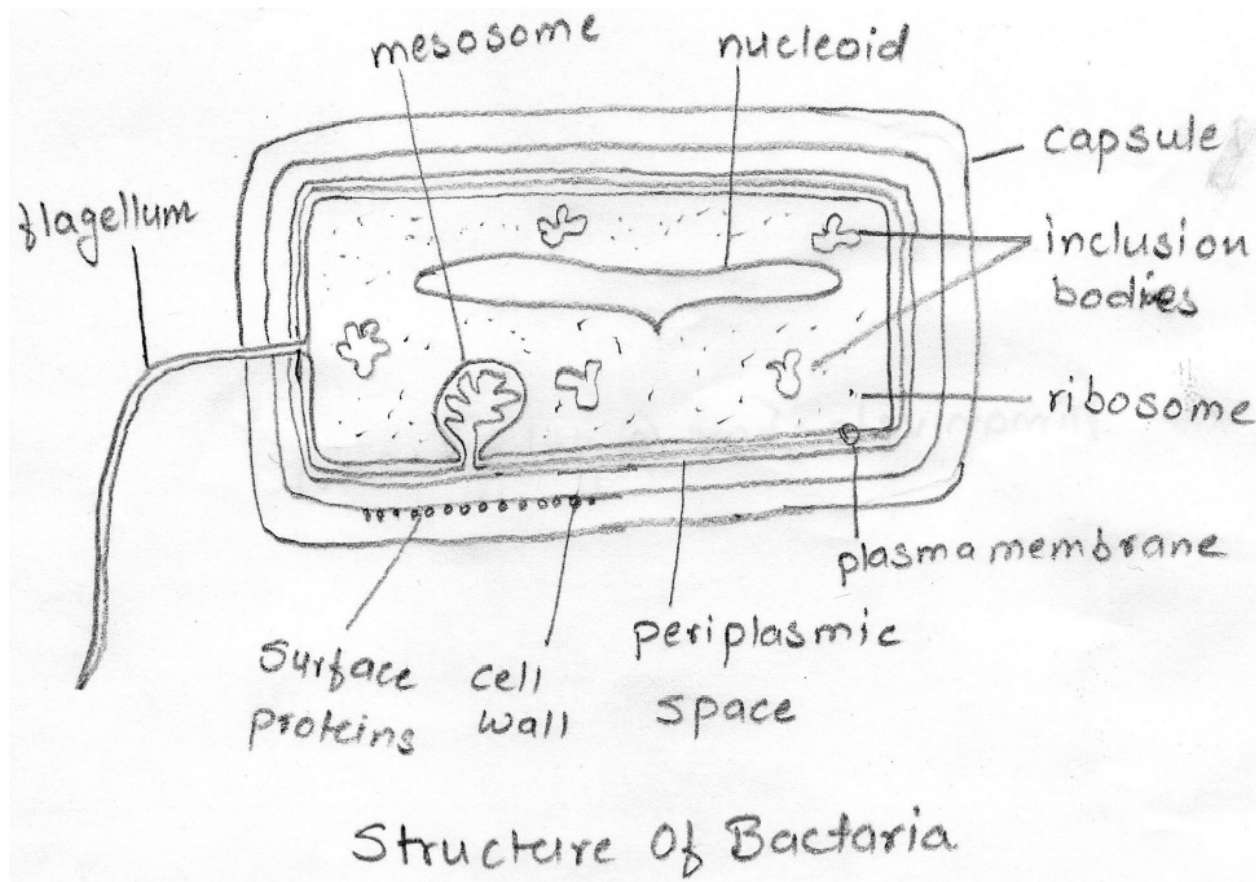 mesosome
nucleoid
capsule
flagellum
inclusion
bodies
ribosome
plasma membrane
periplasmic
space
surface
proteins
cell
wall
Structure Of Bactaria